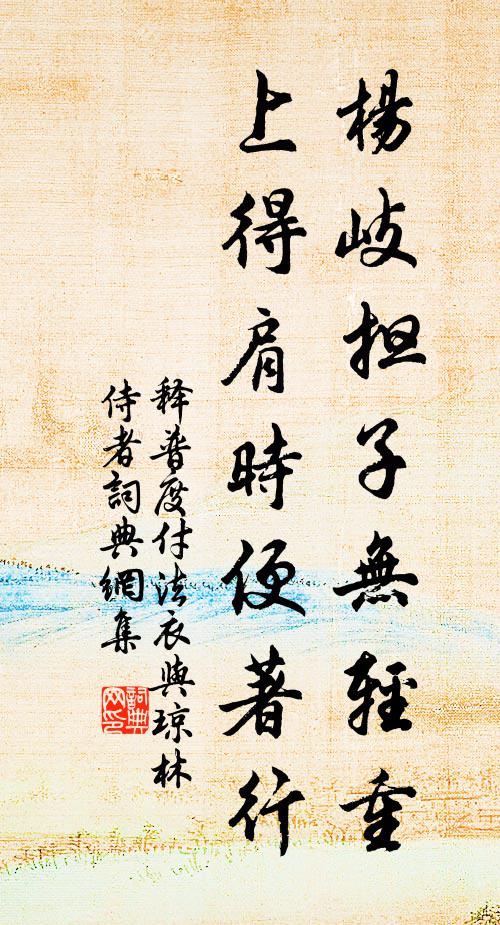 楊岐担子無輕重
上得肩時便著行
释普度付法衣與琼林
侍者詞典網集
詞典网印